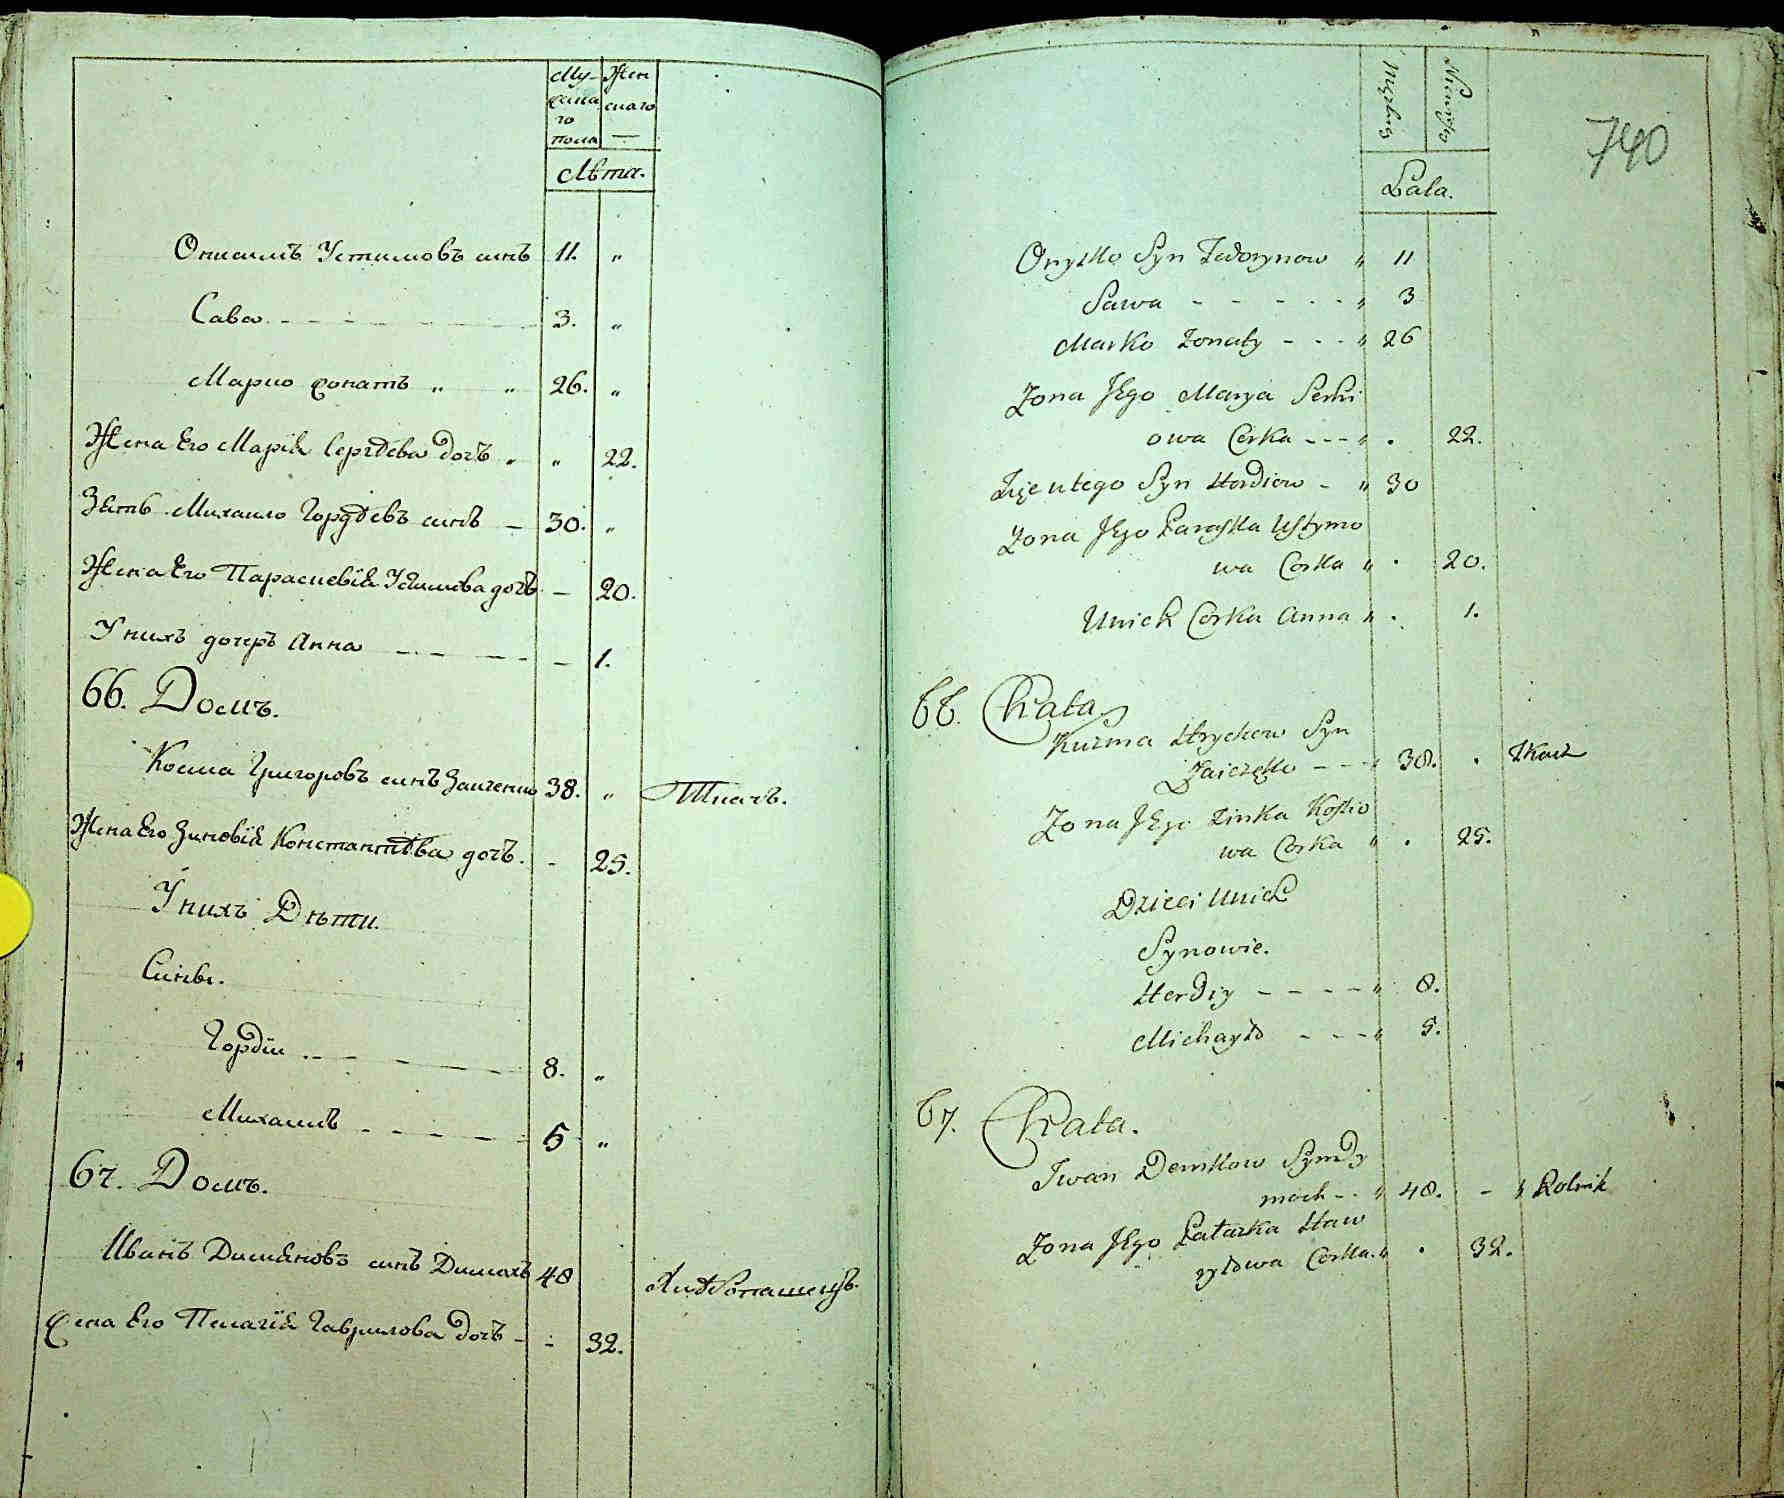 Му-
жска
го
пола
Жен
скаго
Лѣта.
Онисимъ Устимовъ синъ 11. „
Сава 3. „
Марко жонатъ „ „ 26. „
Жена Его Марія Сергѣева дочъ „ „ 22.
Зять Михаило Гордѣевъ синъ – 30. „
Жена Его Параскевія Устимова дочъ – 20.
У нихъ дочеръ Анна – 1.
66. Домъ.
Косма Григоровъ синъ Заиченко 38. „ Ткачъ.
Жена Его Зиновія Константѣва дочъ. – 25.
У нихъ Дѣти.
Сины.
Гордіи 8. „
Михаилъ 5 „
67. Домъ.
Иванъ Димяновъ синъ Димахъ 48 Хлѣбопашецъ.
жена Его Пелагія Гаврилова дочъ – – 32.
740
Męzkiey
Lata.
Onyszko Syn Fedorynow „ 11
Sawa – – – – – „ 3
Marko Żonaty – – – „ 26
Zona Jego Marya Serhi
owa Corka – – – „ . 22.
Syn Hordiow – „ 30
Zona Jego Paraska Ustymo
wa Corka „ . 20.
Unich Corka Anna „ . 1.
66. Chata
Kuzma Hrychow Syn
Zaiczęko – – – „ 38. . Tkacz
Zona Jego Zinka Kostio
wa Corka „ . 25.
Dzieci Unich
Synowie.
Herdiy – – – – „ 8.
Michayło – – – „ 5.
67. Chata.
Iwan Demkow Syn Dy
mach – – „ 48. – „ Rolnik
Zona Jego Pałazka Haw
ryłowa Corka. „ . 32.